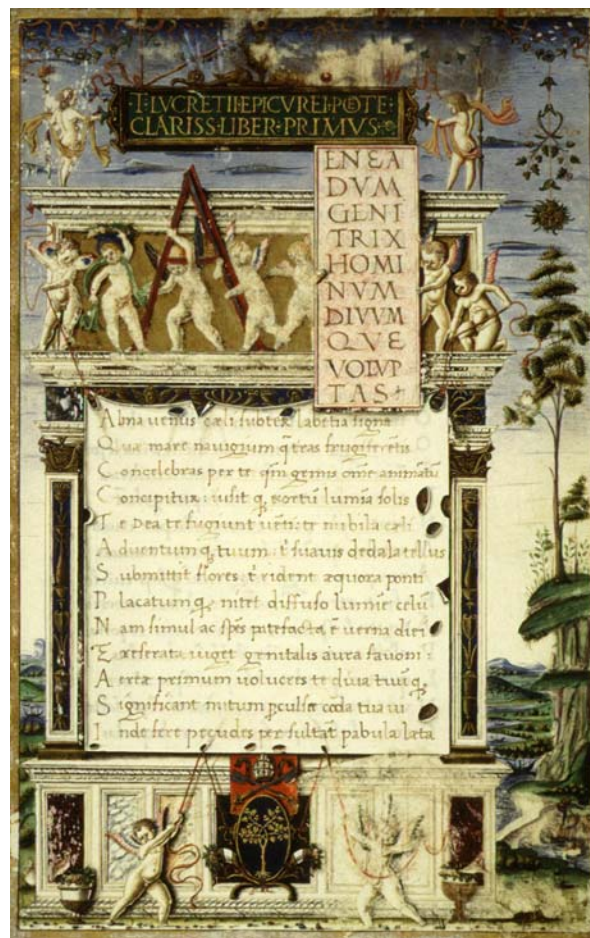 T·LVCRETII·EPICVREI·POTE·
CLARISS·LIBER·PRIMVS·
A
ENEA
DVM
GENI
TRIX
HOMI
NVM
DIVVM
QVE
VOLVP
TAS
Alma uenus cæli subter labētia signa
Quæ mare nauigium q̄ teras frugiferētis
Concelebras per te qm̄ genus om̄e animātū
Concipitur: uisit q; exortū lumīa solis
Te Dea te fugiunt uēti: te nubila cæli
Aduentumq; tuum: t̄ suauis dedala tellus
Submittit flores: t̄ rident æquora ponti
Placatumq; nitet diffuso lumīe celū
Nam simul ac spēs patefacta ē uerna diei
Et reserata uiget genitalis aura fauoni:
Aeriæ primum uolucres te diua tuūq;
Significant initum p̄culsæ coda tua ui
Inde feræ pecudes per sultāt pabula læta